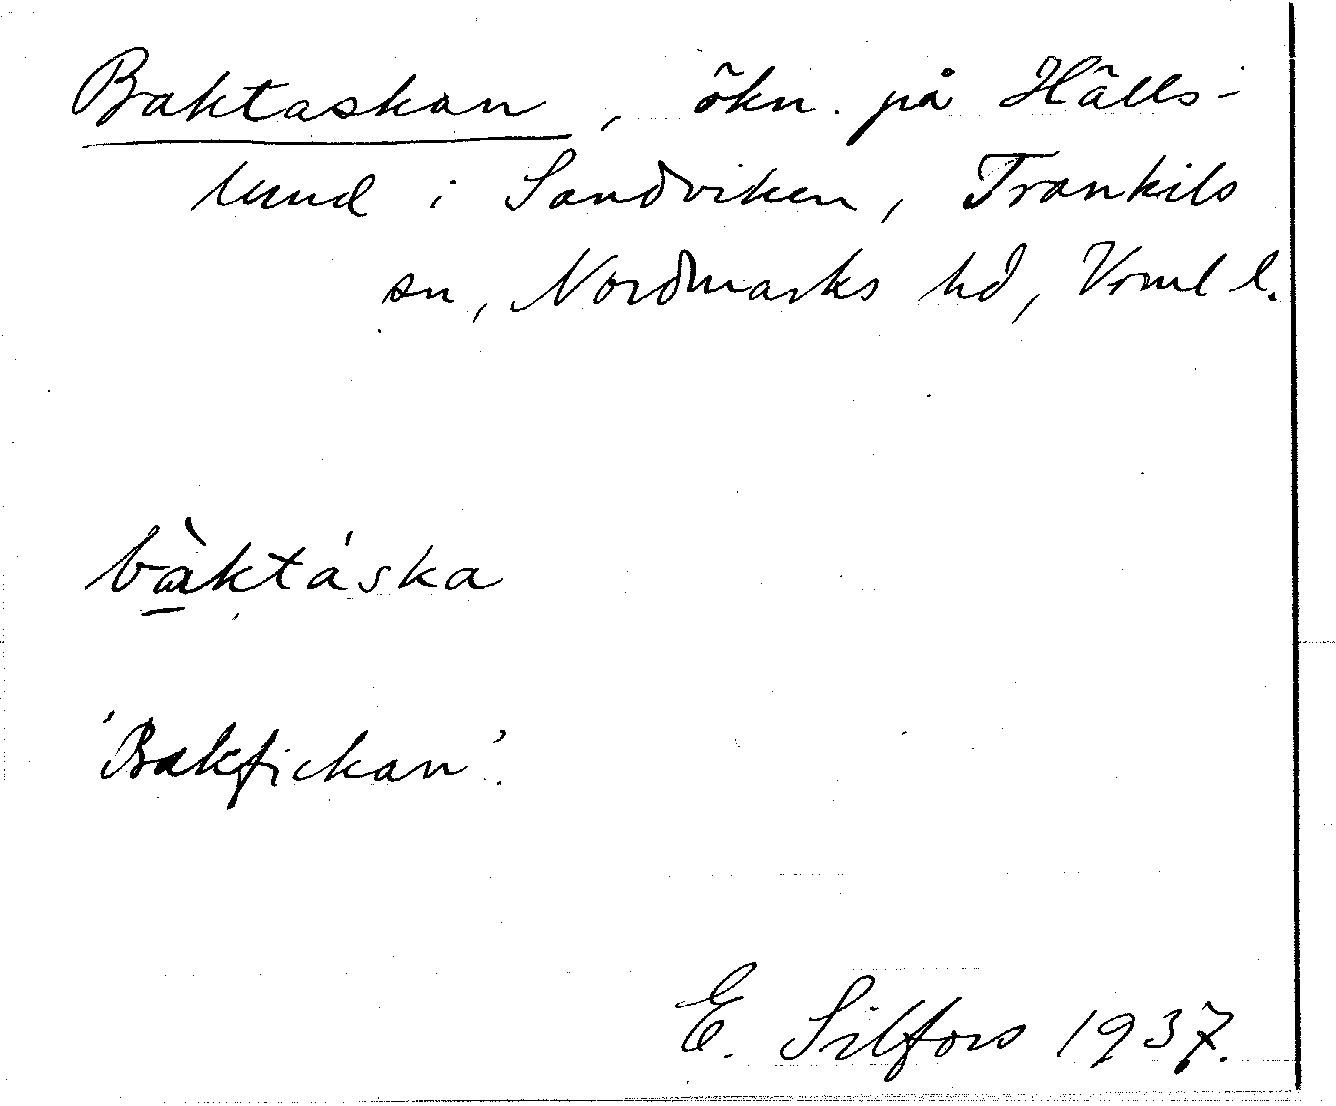 Baktaskan, ökn. på Hälls-
lund i Sandviken, Trankils
sn, Nordmarks hd, Vrml l.
bàktáska
'Bakfickan'.
E. Silfors 1937.